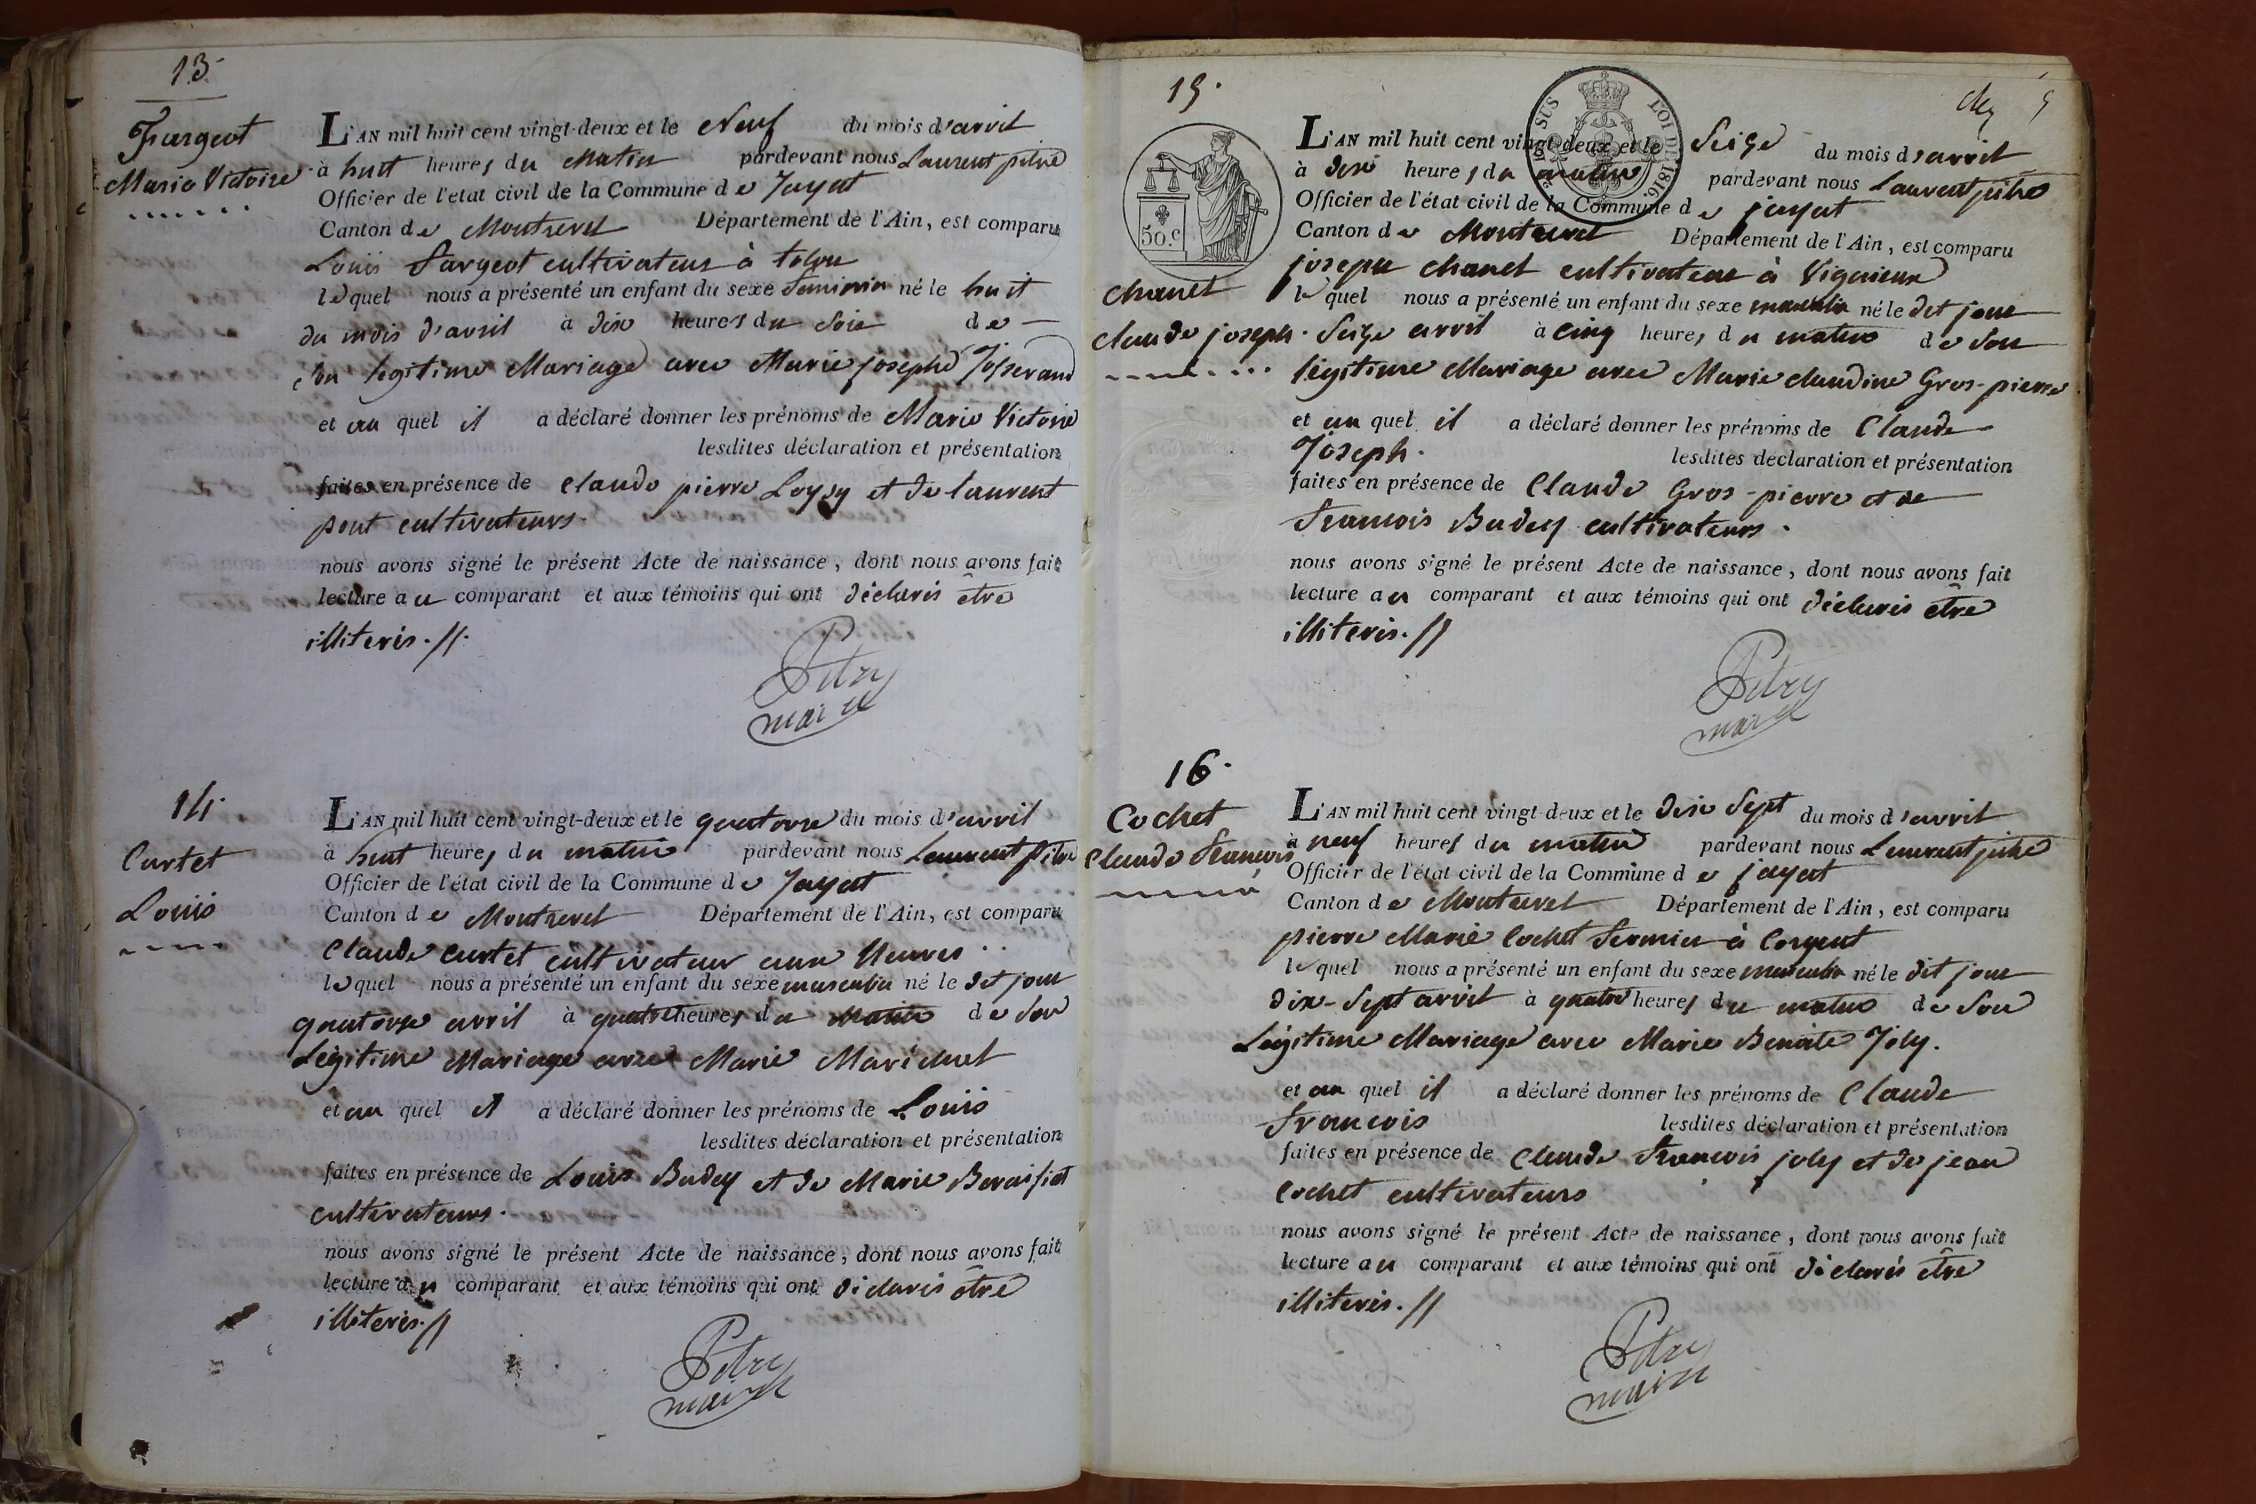 13.
Fargeot
Marie Victoire
L'AN mil huit cent vingt-deux et le Neuf du mois d'avril
à huit heures du Matin pardevant nous Laurent pitre
Officier de l'etat civil de la Commune de Jayat
Canton de Montrevel Département de l'Ain, est comparu
Louis Fargeot cultivateur à
lequel nous a présenté un enfant du sexe feminin né le huit
du mois d'avril à dix heures du soir de
son legitime Mariage avec Marie josephe Josserand
et au quel il a déclaré donner les prénoms de Marie Victoire
lesdites déclaration et présentation
faites en présence de claude pierre et de laurent
pont cultivateurs.
nous avons signé le présent Acte de naissance, dont nous avons fait
lecture au comparant et aux témoins qui ont déclarés être
illiterés. //.
Pitre
maire
14.
Curtet
Louis
L'AN mil huit cent vingt-deux et le quatorze du mois d'avril
à huit heures du matin pardevant nous Laurent Pitre
Officier de l'état civil de la Commune de Jayat
Canton de Montrevel Département de l'Ain, est comparu
Claude curtet cultivateur aux
lequel nous a présenté un enfant du sexe masculin né le dit jour
quatorze avril à quatre heures du Matin de son
Légitime Mariage avec Marie
et au quel il a déclaré donner les prénoms de Louis
lesdites déclaration et présentation
faites en présence de Louis Badey et de Marie
cultivateurs.
nous avons signé le présent Acte de naissance, dont nous avons fait
lecture au comparant et aux témoins qui ont déclarés être
illiterés. //
Pitre
maire
15.
SUS LOI DE 1816.
50.c
chanel
claude joseph.
L'AN mil huit cent vingt-deux et le Seize du mois d'avril
à dix heures du matin pardevant nous Laurent pitre
Officier de l'état civil de la Commune de jayat
Canton de Montrevel Département de l'Ain, est comparu
joseph chanel cultivateur à
lequel nous a présenté un enfant du sexe masculin né le dit jour
Seize avril à cinq heures du matin de son
légitime Mariage avec Marie claudine Gros-pierre
et au quel il a déclaré donner les prénoms de Claude
Joseph. lesdites déclaration et présentation
faites en présence de Claude Gros-pierre et de
francois Badey cultivateurs.
nous avons signé le présent Acte de naissance, dont nous avons fait
lecture au comparant et aux témoins qui ont déclarés être
illiterés. //
Pitre
maire
16.
Cochet
Claude francois
L'AN mil huit cent vingt-deux et le dix Sept du mois d'avril
à neuf heures du matin pardevant nous Laurent pitre
Officier de l'état civil de la Commune de jayat
Canton de Montrevel Département de l'Ain, est comparu
pierre Marie Cochet fermier à Corgent
lequel nous a présenté un enfant du sexe masculin né le dit jour
dix-Sept avril à quatre heures du matin de son
Légitime Mariage avec Marie Benoite Joly.
et au quel il a déclaré donner les prénoms de Claude
francois lesdites déclaration et présentation
faites en présence de Claude francois joly et de jean
Cochet cultivateurs
nous avons signé le présent Acte de naissance, dont nous avons fait
lecture au comparant et aux témoins qui ont déclarés être
illiterés. //
Pitre
maire